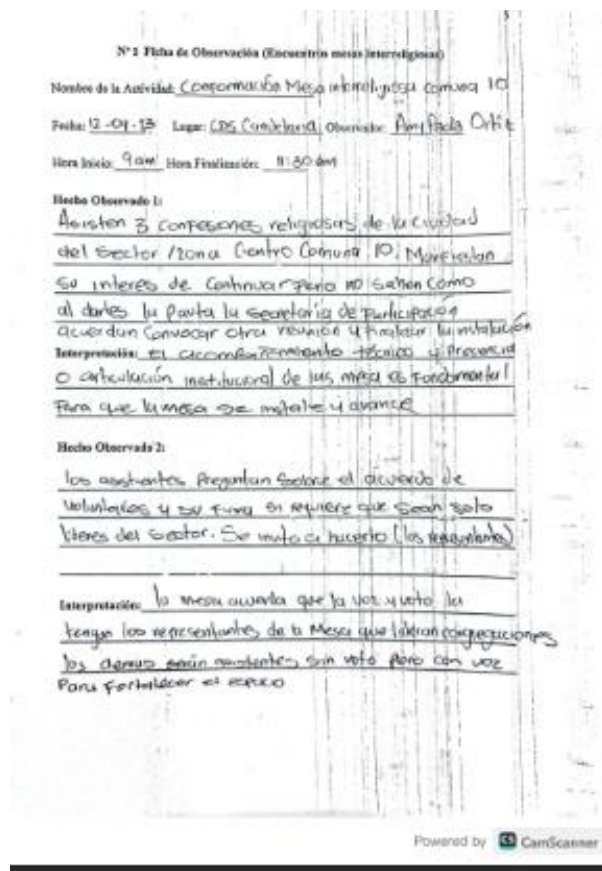 Nº 1 Ficha de Observación (Encuentros mesas interreligiosas)
Nombre de la Actividad: Conformación Mesa interreligiosa comuna 10
Fecha: 12-04-23 Lugar: CDS Candelaria Observador: Amy Paola Ortiz
Hora Inicio: 9 am Hora Finalización: 11:30 am
Hecho Observado 1:
Asisten 3 confesiones religiosas de la ciudad
del sector / zona Centro Comuna 10; Manifiestan
su interés de continuar pero no saben como
al darles la pauta la secretaria de Participación
acuerdan convocar otra reunión y finalizar la instalación
Interpretación: El acompañamiento técnico y presencia
o articulación institucional de las mesa es fundamental
para que la mesa se instale y avance
Hecho Observado 2:
los asistentes preguntan sobre el acuerdo de
voluntades y su firma si requiere que sean solo
lideres del sector. Se invita a hacerlo (los
Interpretación: la mesa acuerda que la voz y voto la
tengan los representantes de la Mesa que lideran congregaciones
los demás serán asistentes sin voto pero con voz
Para fortalecer el espacio
Powered by CS CamScanner